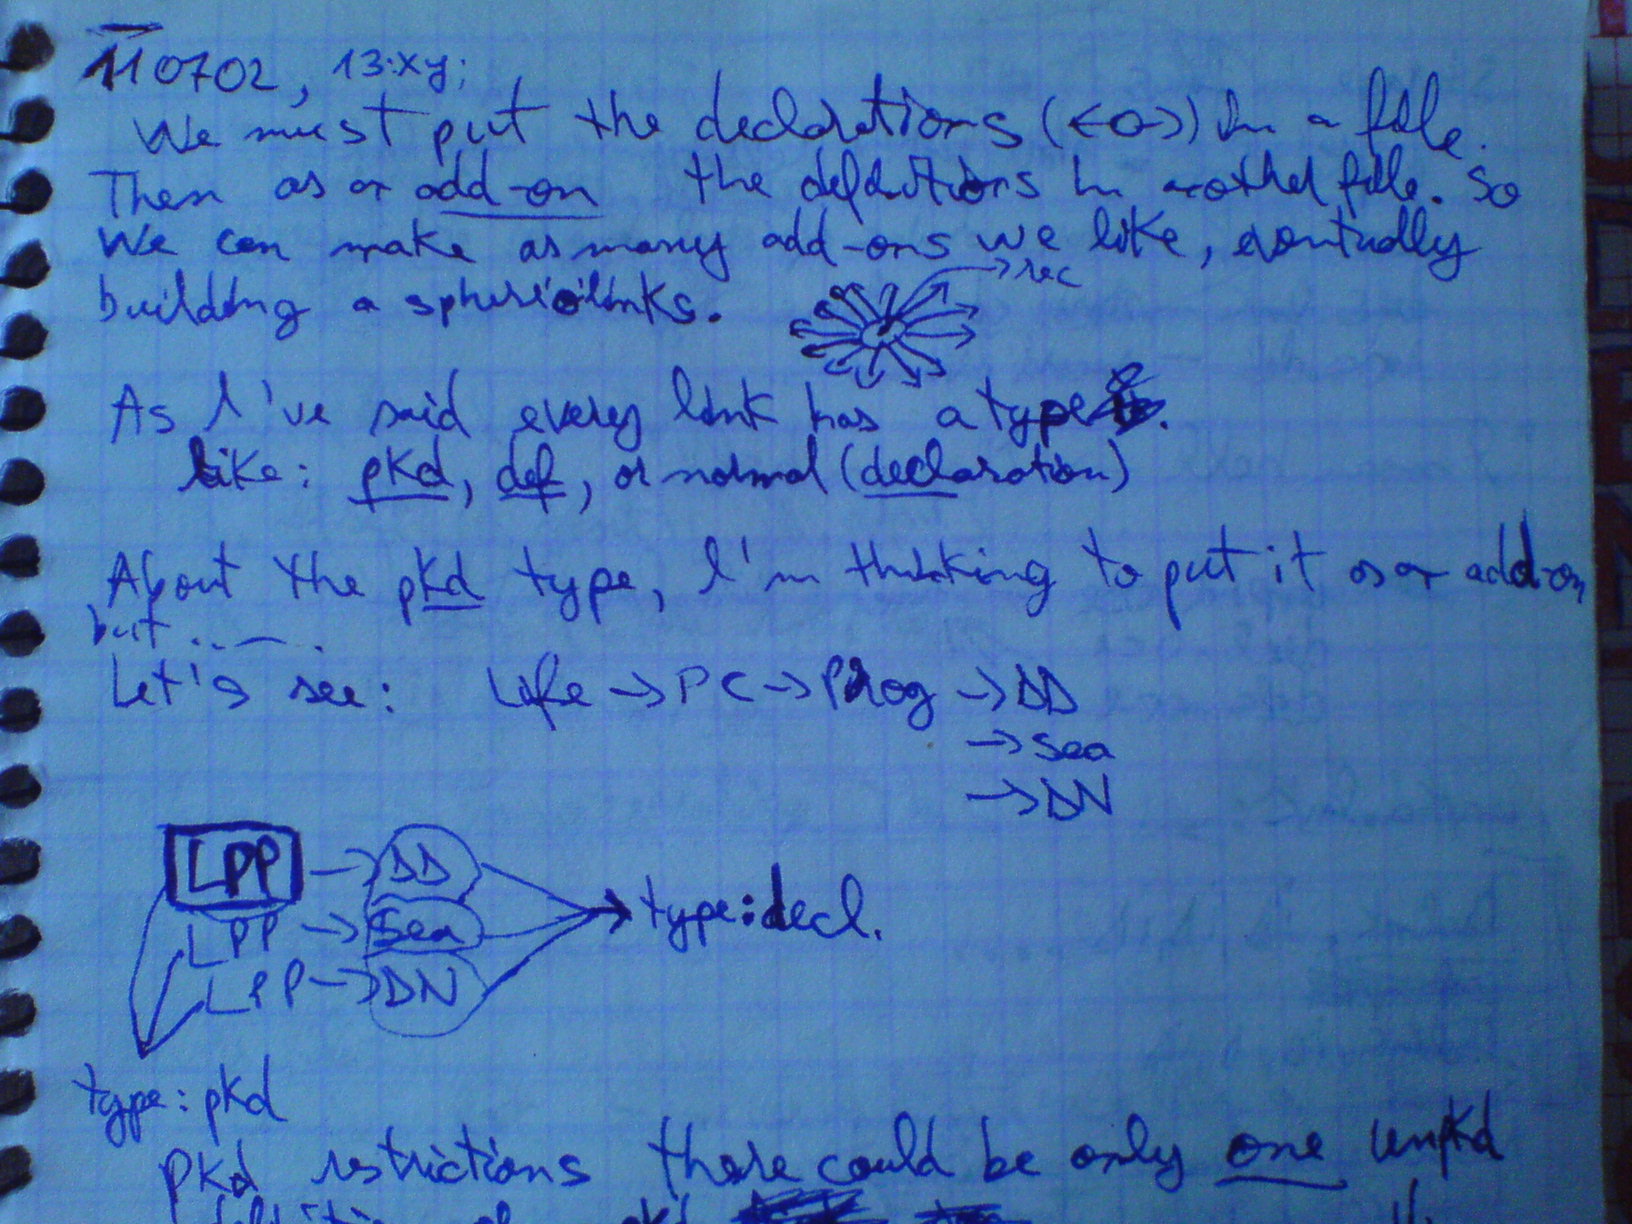 110702, 13:xy;
We must put the declarations (<-o->) in a file.
Then as an add-on the definitions in another file. So
We can make as many add-ons we like, eventually
building a spheric links.
-> rec
As I've said every link has a type.
like: pkd, def, or normal (declaration)
About the pkd type, I'm thinking to put it as an add-on
but ......
Let's see: Life -> PC -> Prog -> DD
-> Sea
-> DN
LPP -> DD
LPP -> Sea -> type:decl.
LPP -> DN
type: pkd
Pkd restrictions there could be only one unpkd